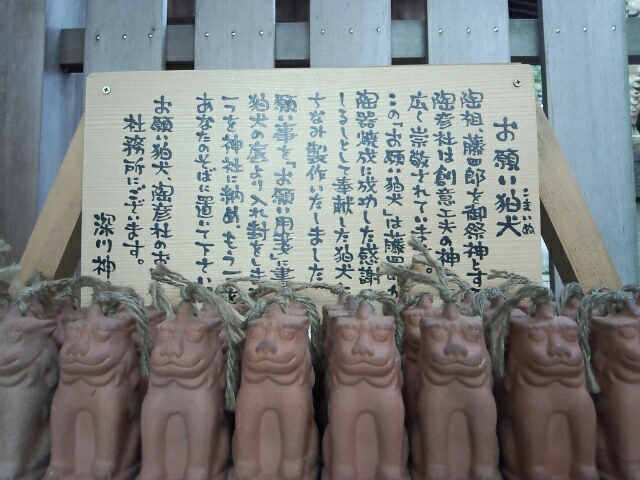 お願い狛犬
こまいぬ
陶祖、藤四郎を御祭神とす
陶彦社は創意工夫の神
広く崇敬されています。
この「お願い狛犬」は藤四
陶器焼成に成功した感謝
しるしとして奉献した狛犬に
ちなみ製作いたしました
願い事を「お願い用箋」に書
狛犬の底より入れ封をしま
一つを神社に納め、もう一
あなたのそばに置いて下さい
お願い狛犬、陶彦社のお
社務所にございます。
深川神